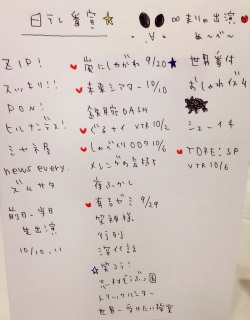 日テレ番宣
まりの出演
ZIP!
スッキリ!!
PON!
ヒルナンデス!
ミヤネ屋
news every.
ズムサタ
前日〜当日
生出演
10/10.11
嵐にしやがれ 9/20
未来シアター 10/10
鉄腕DASH
ぐるナイ VTR 10/2
しゃべくり007 10/6
メレンゲの気持ち
夜ふかし
有吉ゼミ 9/29
笑神様
行列
深イイ話
笑コラ!
志村どうぶつ園
トリックハンター
世界一受けたい授業
世界番付
おしゃれイズム
シューイチ
TORE! SP
VTR 10/6